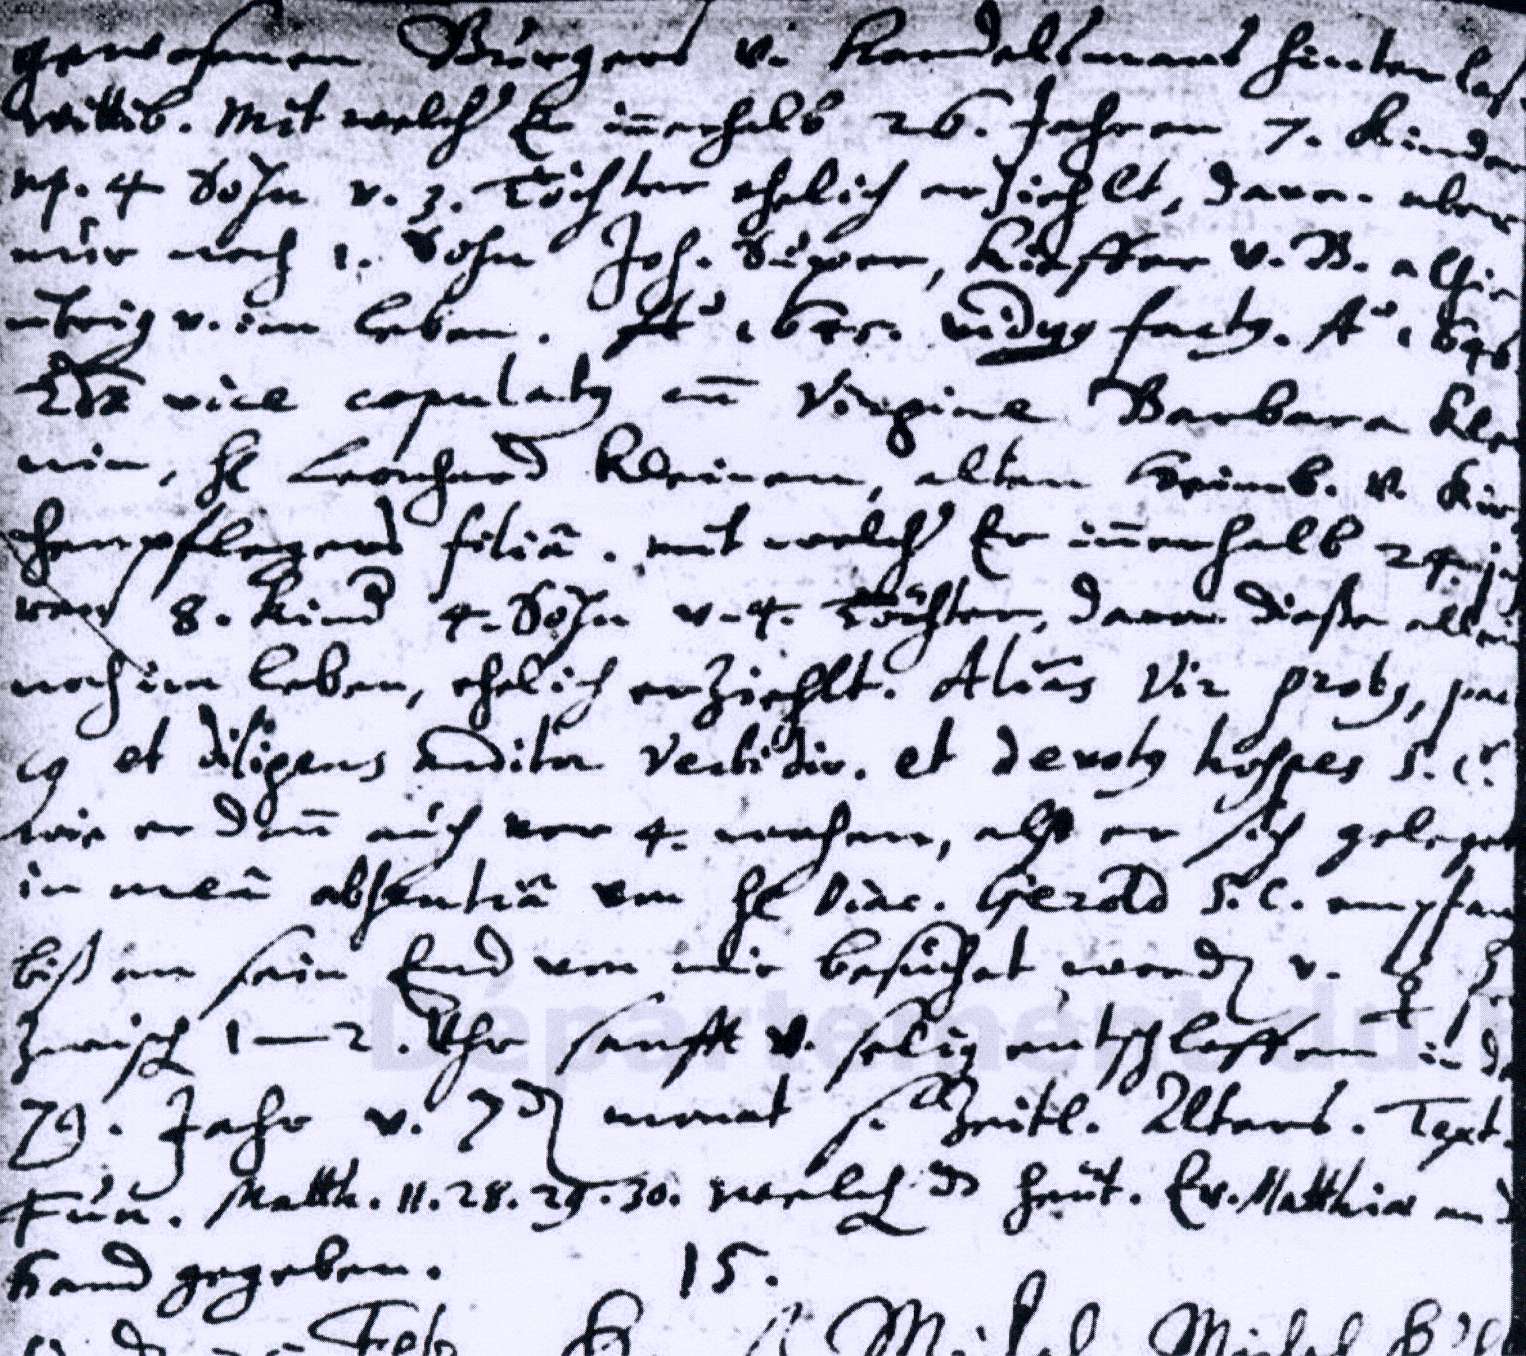 gewesenen Burgers v. Handelsmans hinterlaß.
wittib. Mit welch' Er in̄erhalb 26. Jahren 7. Kinder
np. 4 Söhn v. 3. Töchter ehelich erziehlt, davon aber
nur noch 1. Sohn Joh. , Kieffer v. B. alhier
ubrig v. im leben. Aō 1645. viduus factus. Aō 1646
2da vice copulatus cum̄ Virgine Barbara Klei
nin, H Leonhard Kleinen, alten Heimb. v. Kir
chenpflegers filiâ. mit welch' Er in̄erhalb 24. ja
ren 8. Kind 4. Söhn v. 4. Töchter, davon dieße allein
noch im leben, ehelich erziehlt. Aliâs Vir probus, pa
cus et diligens auditor Verbi div. et devotus hospes S. C.
wie er dan̄ auch vor 4. wochen, alß er sich geleget
in meâ absentiâ von H Diac. Gerold S. C. empfang
biß an sein End von mir besuchet worden v.
zwisch 1—2. Uhr sanfft v. selig entschlaffen in de
79. Jahr v. 7den monat s. Zeitl. Alters. Text.
Fun. Matth. 11. 28. 29. 30. welch heut. Ev. Matthiae an d
hand gegeben. 15.
Feb Michel